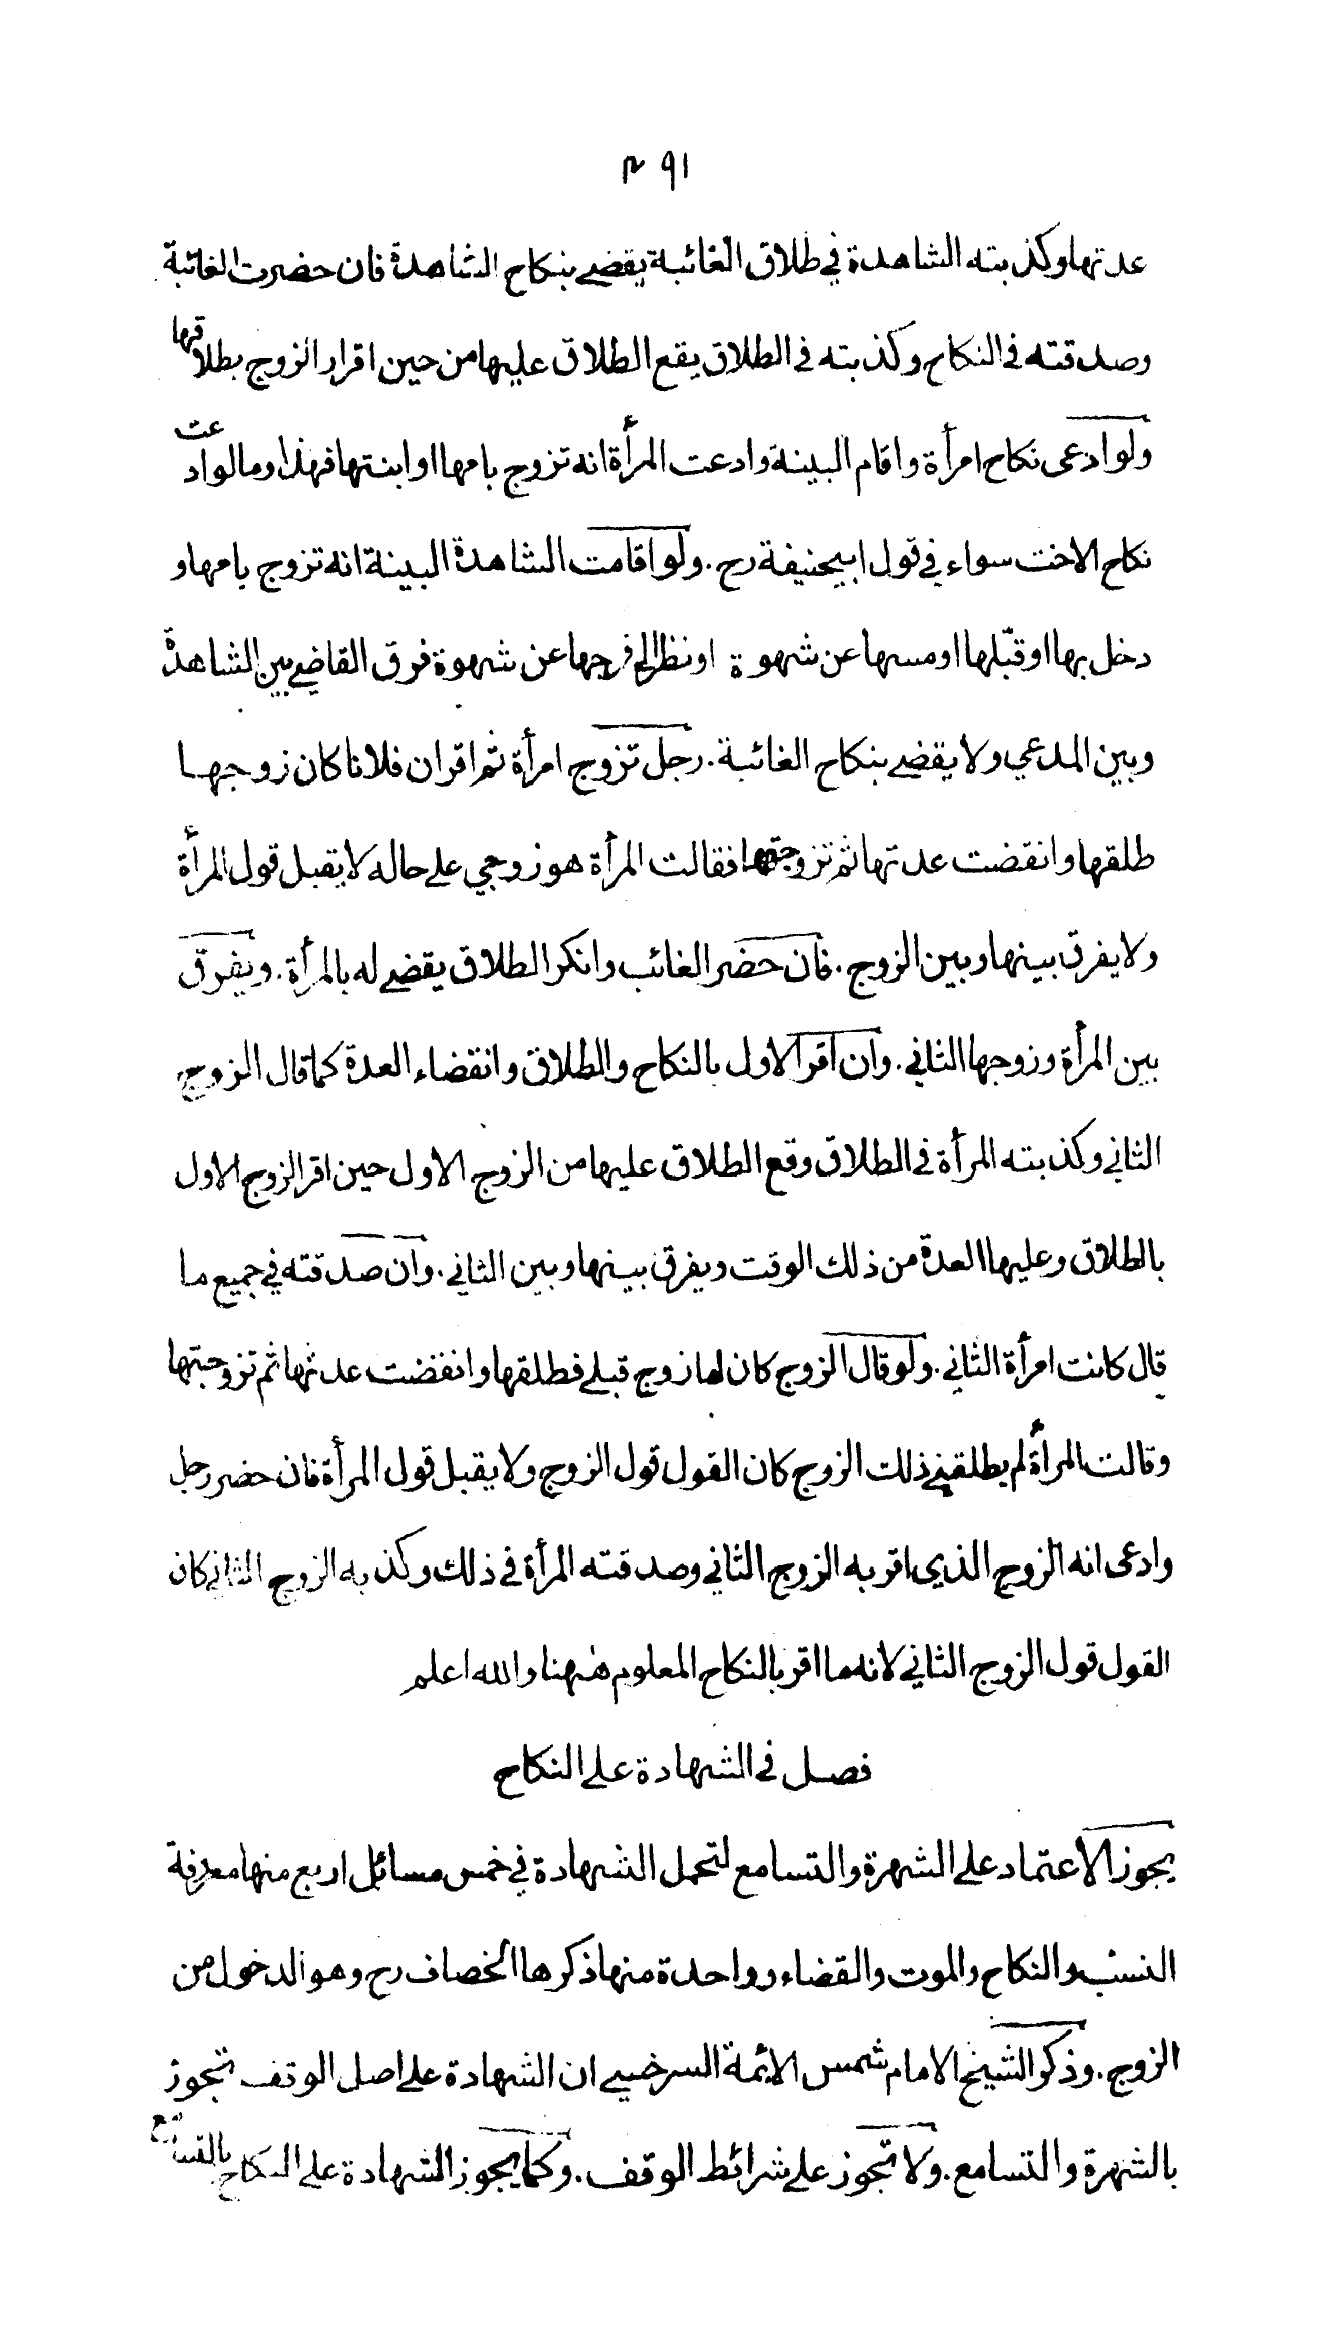 ٤٩١
عدتها وكذبته الشاهدة في طلاق الغائبة يقضي بنكاح الشاهدة فان حضرت الغائبة
وصدقته في النكاح وكذبته في الطلاق يقع الطلاق عليها من حين اقرار الزوج بطلاقها
ولو ادعى نكاح امرأة واقام البينة وادعت المرأة انه تزوج بامها او ابنتها فهذا وما لو ادعت
نكاح الاخت سواء في قول ابيحنيفة رح. ولو اقامت الشاهدة البينة انه تزوج بامها و
دخل بها او قبّلها او مسها عن شهوة او نظر الى فرجها عن شهوة فرق القاضي بين الشاهدة
وبين المدعي ولا يقضي بنكاح الغائبة. رجل تزوج امرأة ثم اقر ان فلانا كان زوجها
طلقها وانقضت عدتها ثم تزوجتها فقالت المرأة هو زوجي على حاله لا يقبل قول المرأة
ولا يفرق بينها وبين الزوج. فان حضر الغائب وانكر الطلاق يقضي له بالمرأة. ويفرق
بين المرأة وزوجها الثاني. وان اقر الاول بالنكاح والطلاق وانقضاء العدة كما قال الزوج
الثاني وكذبته المرأة في الطلاق وقع الطلاق عليها من الزوج الاول حين اقر الزوج الاول
بالطلاق وعليها العدة من ذلك الوقت ويفرق بينها وبين الثاني. وان صدقته في جميع ما
قال كانت امرأة الثاني. ولو قال الزوج كان لها زوج قبلي فطلقها وانقضت عدتها ثم تزوجتها
وقالت المرأة لم يطلقني ذلك الزوج كان القول قول الزوج ولا يقبل قول المرأة فان حضر رجل
وادعى انه الزوج الذي اقر به الزوج الثاني وصدقته المرأة في ذلك وكذبه الزوج الثاني كان
القول قول الزوج الثاني لانهما اقر بالنكاح المعلوم ههنا والله اعلم
فصل في الشهادة على النكاح
يجوز الاعتماد على الشهرة والتسامع لتحمل الشهادة في خمس مسائل اربع منها معرفة
النسب والنكاح والموت والقضاء وواحدة منها ذكرها الخصاف رح وهو الدخول من
الزوج. وذكر الشيخ الامام شمس الائمة السرخسي ان الشهادة على اصل الوقف تجوز
بالشهرة والتسامع. ولا تجوز على شرائط الوقف. وكما يجوز الشهادة على النكاح بالتسامع